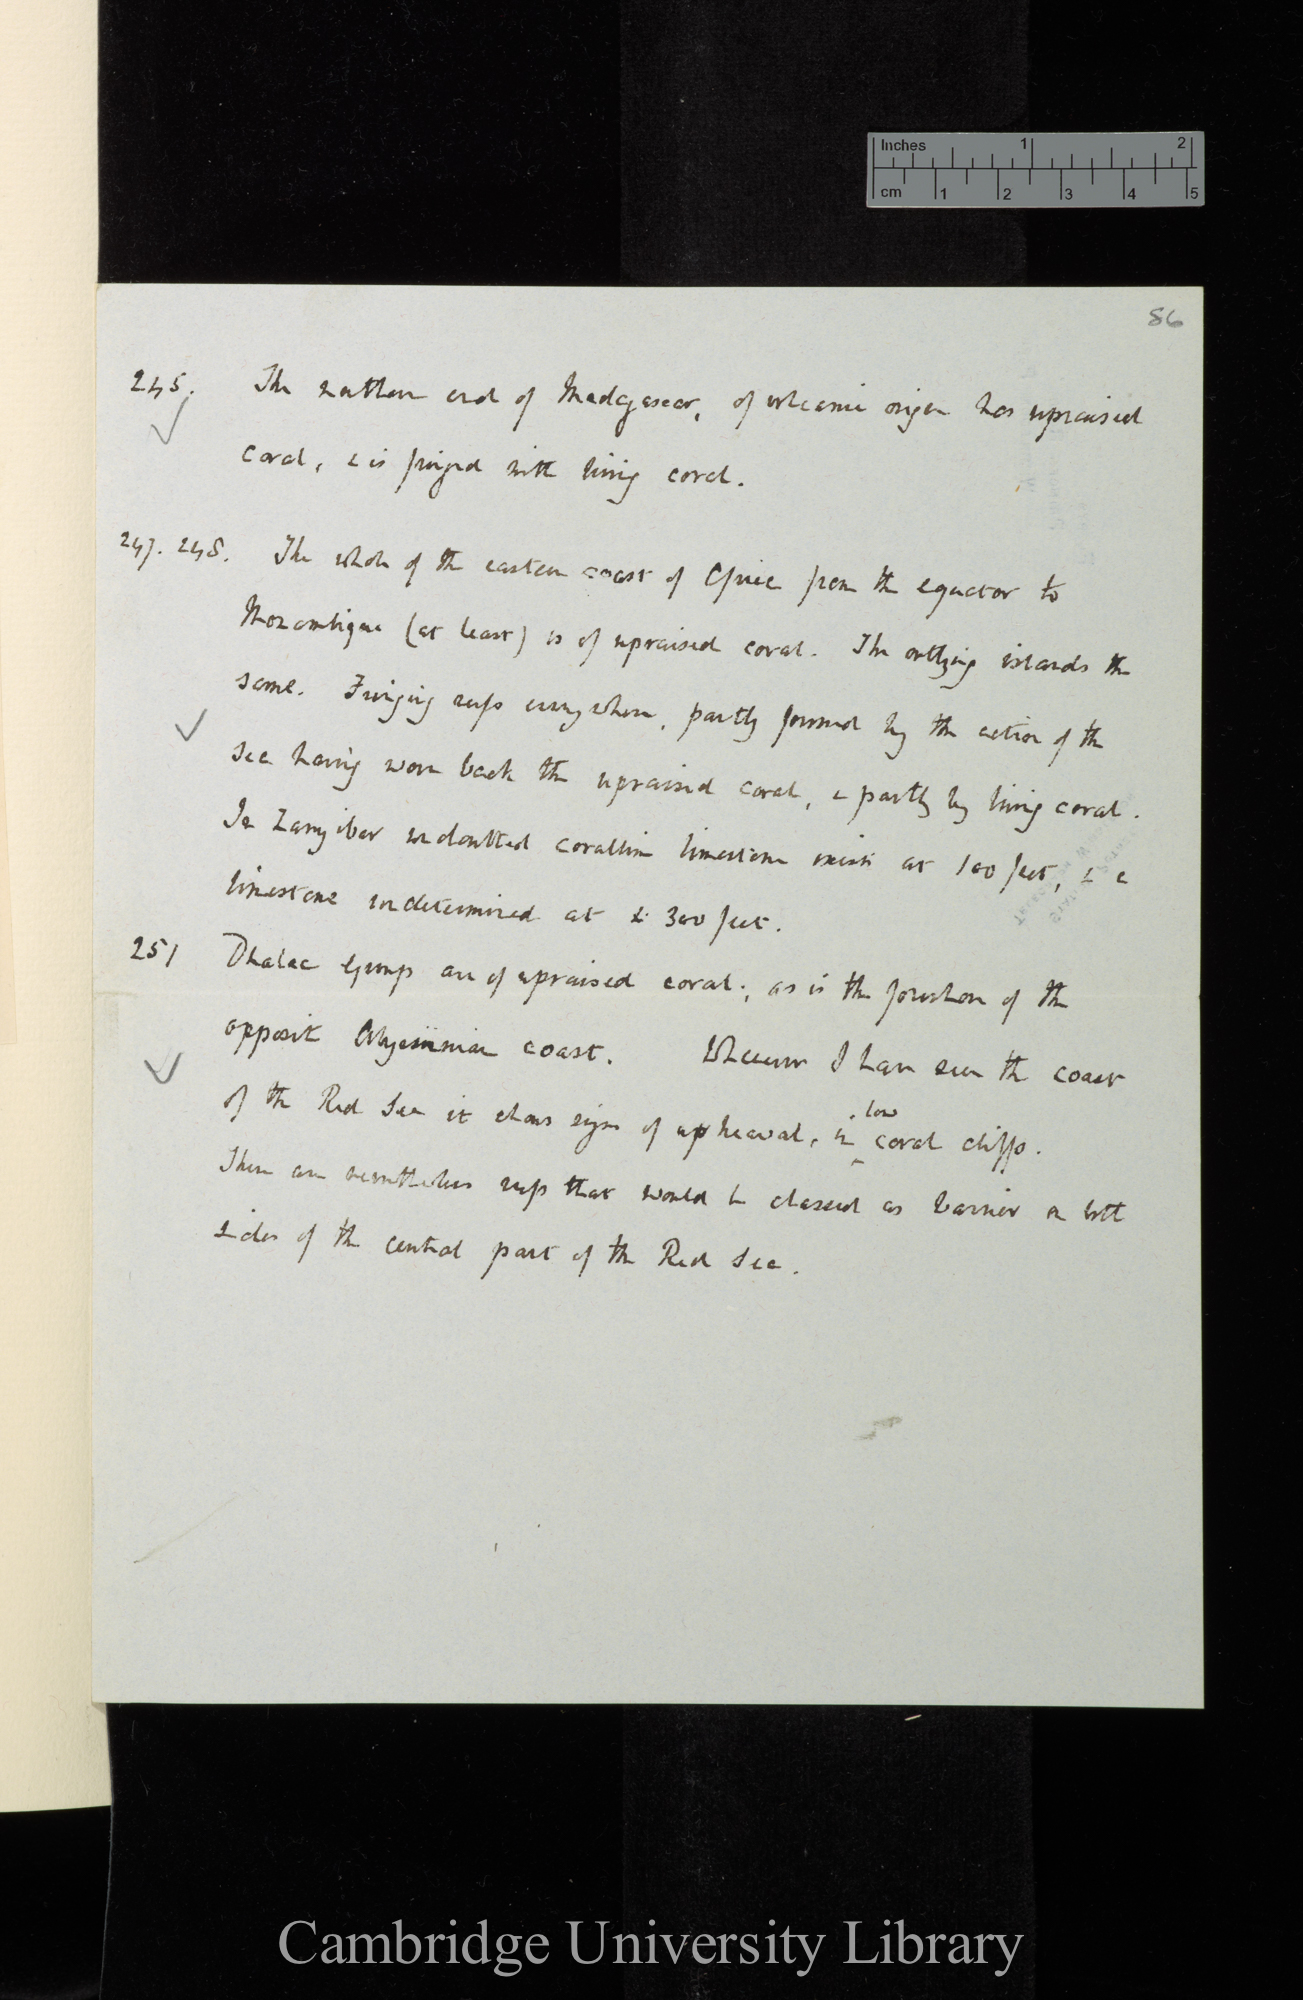 Inches 1 2
cm 1 2 3 4 5
86
245. The northern end of Madagascar, of volcanic origin has upraised
coral, & is fringed with living coral.
247. 248. The whole of the eastern coast of Africa from the equator to
Mozambique (at least) is of upraised coral. The outlying islands the
same. Fringing reefs everywhere, partly formed by the action of the
sea having worn back the upraised coral, & partly by living coral.
In Zanzibar undoubted coralline limestone exists at 100 feet, & a
limestone undetermined at 300 feet.
251 Dhalac Group are of upraised coral; as is the foreshore of the
opposite Abyssinian coast. Wherever I have seen the coast
of the Red Sea it shows signs of upheaval, in low coral cliffs.
There are nevertheless reefs that would be classed as barrier on both
sides of the central part of the Red Sea.
Cambridge University Library